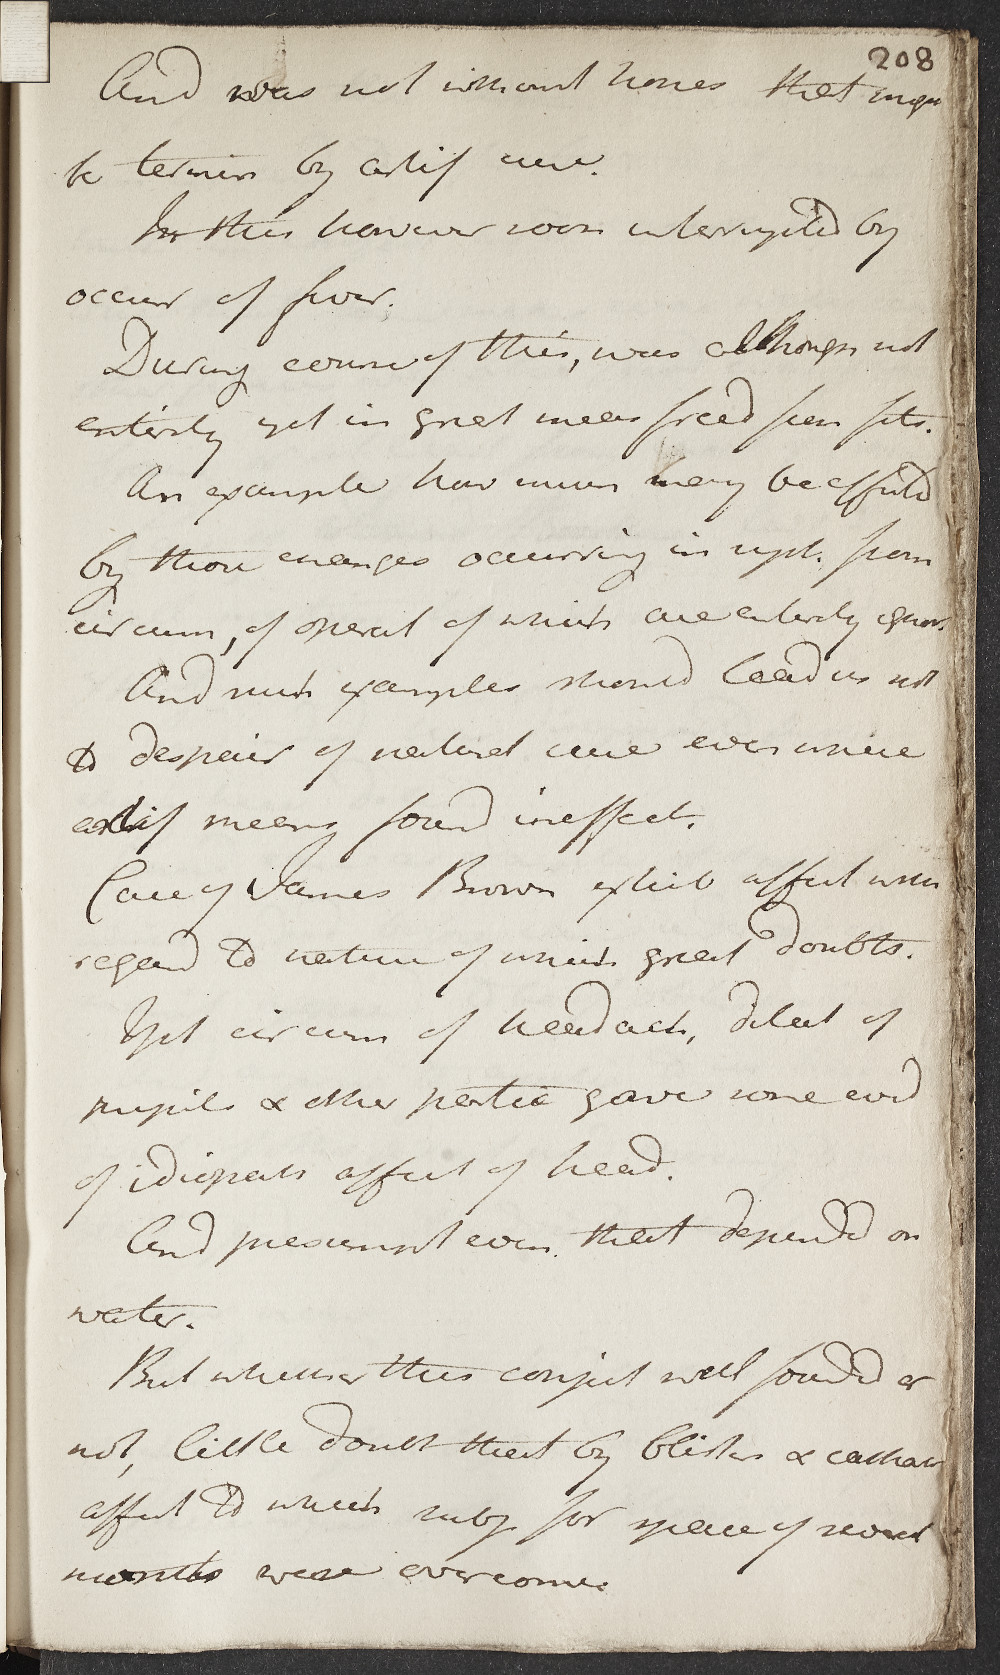 208
And was not without hopes that might
be termin by artif cure.
In this however soon interrupted by
occur of fever.
During course of this, was although not
entirely yet in great meas freed from fits.
An example how much may be effected
by those changes occurring in syst. from
circum, of operat of which are entirely ignor.
And such examples should lead us not
to despair of natural cure even where
artif means found ineffect.
Case of James Brown exhib affect with
regard to nature of which great doubts.
Yet circum of headach, dilat of
pupils & other partic gave some evid
of idiopath affect of head.
And presumpt even that depended on
water.
But whether this conject well founded or
not, little doubt that by blisters & cathar
affect to which subj for space of several
months were overcome